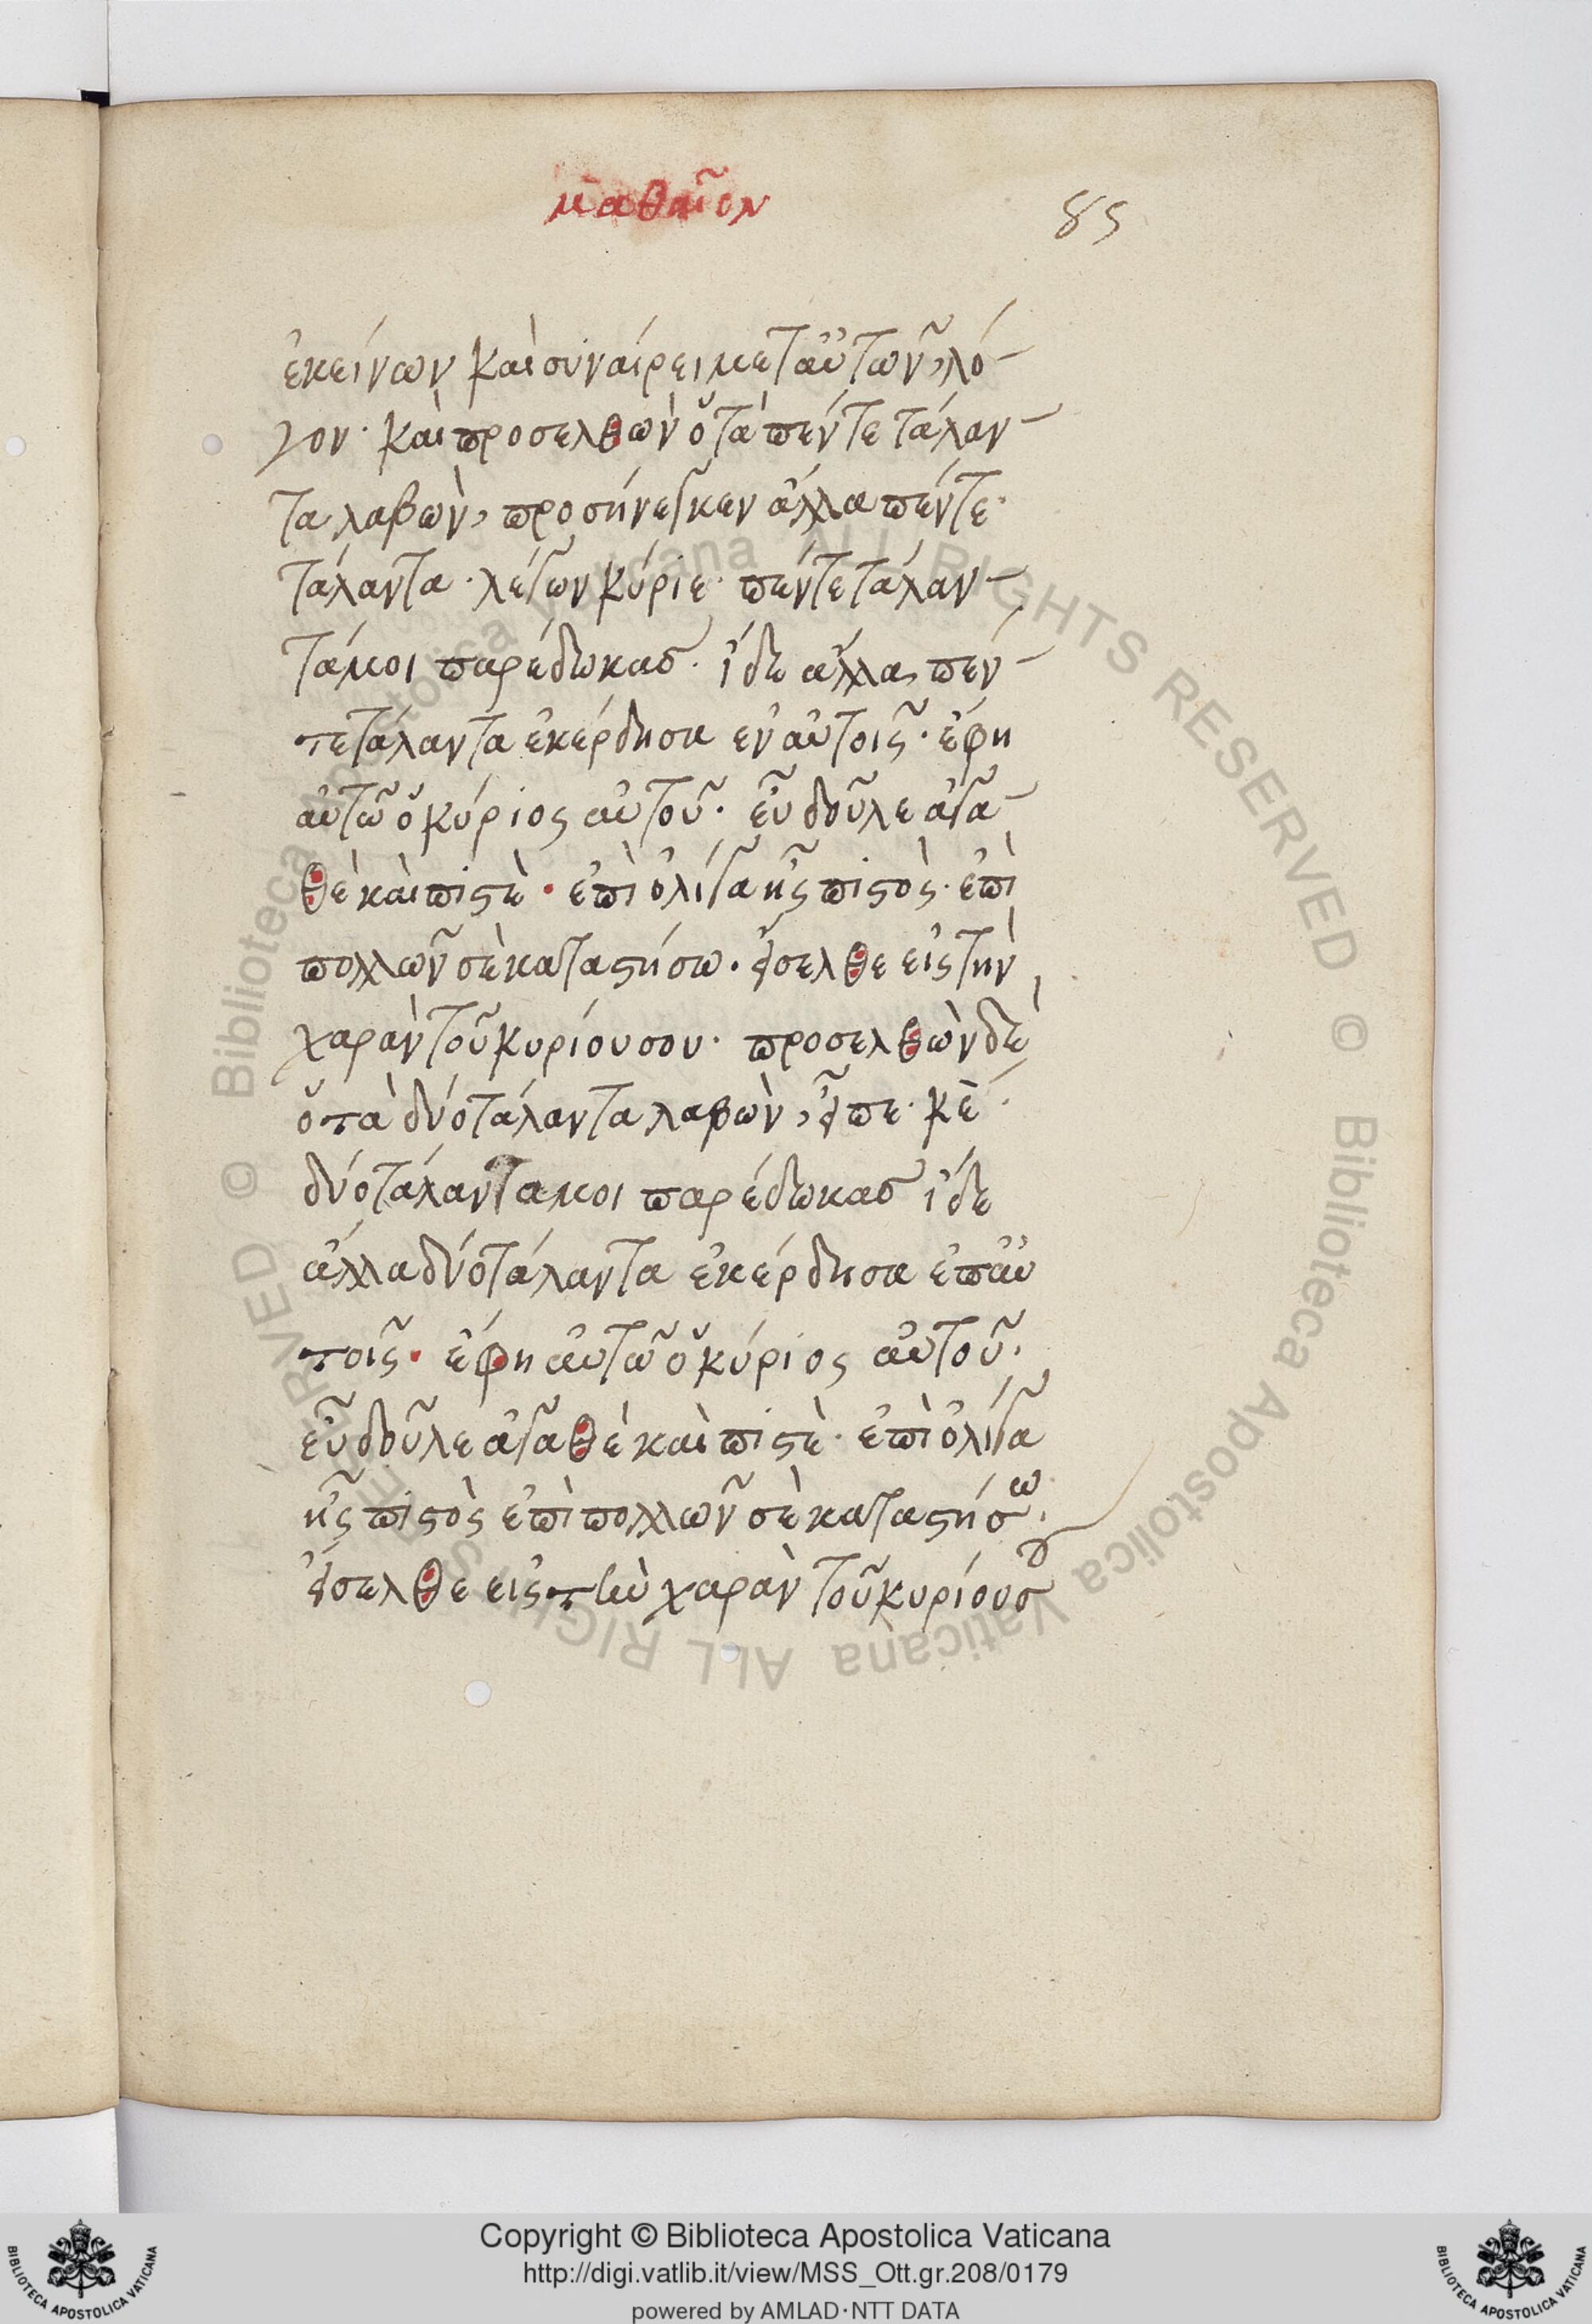 μαθαῖον
85
ἐκείνων καὶ συναίρει μετ αὐτῶν, λό-
γον· καὶ προσελθὼν ὁ τὰ πέντε τάλαν-
τα λαβὼν, προσήνεγκεν ἄλλα πέντε·
τάλαντα· λέγων κύριε· πέντε τάλαν-
τά μοι παρέδωκασ· ἴδε ἄλλα, πεν-
τε τάλαντα ἐκέρδησα ἐν αὐτοῖς· ἔφη
αὐτῶ ὁ κύριος αὐτοῦ· εὖ δοῦλε ἀγα-
θὲ καὶ πιστὲ· ἐπὶ ὀλίγα ἦς πιστὸς· ἐπὶ
πολλῶν σὲ καταστήσω· εἴσελθε εἰς τὴν
χαρὰν τοῦ κυρίου σου· προσελθὼν δὲ
ὁ τὰ δύο τάλαντα λαβὼν, εἶπε· κὲ·
δύο τάλαντα μοι παρέδωκασ ἴδε
ἄλλα δύο τάλαντα ἐκέρδησα ἐπ αὐ
τοῖς· ἔφη αὐτῶ ὁ κύριος αὐτοῦ·
εὖ δοῦλε ἀγαθὲ καὶ πιστὲ· ἐπὶ ὀλίγα
ἦς πιστὸς ἐπὶ πολλῶν σὲ καταστήσω·
εἴσελθε εἰς τὴν χαρὰν τοῦ κυρίου σου
© Biblioteca Apostolica Vaticana ALL RIGHTS RESERVED © Biblioteca Apostolica Vaticana ALL RIGHTS RESERVED
Copyright © Biblioteca Apostolica Vaticana
http://digi.vatlib.it/view/MSS_Ott.gr.208/0179
powered by AMLAD·NTT DATA
BIBLIOTECA APOSTOLICA VATICANA
BIBLIOTECA APOSTOLICA VATICANA